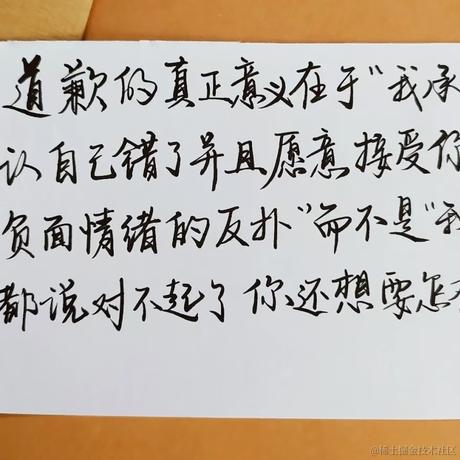 道歉的真正意义在于"我承
认自己错了并且愿意接受你
负面情绪的反扑"而不是"我
都说对不起了你还想要怎
@稀土掘金技术社区